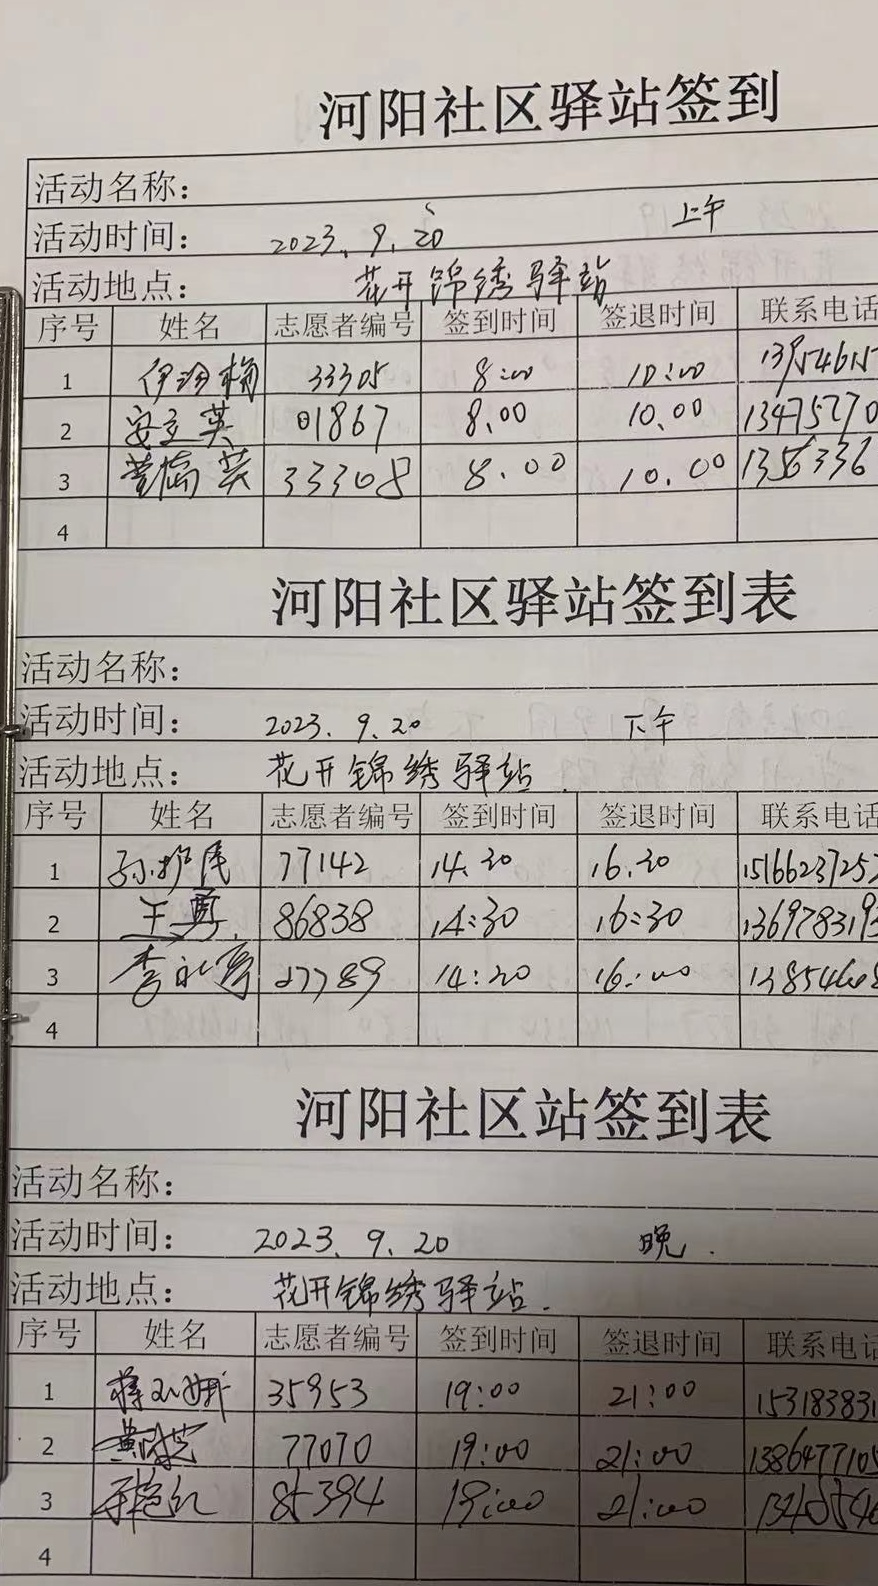 河阳社区驿站签到
活动名称：
活动时间： 2023.9.20 上午
活动地点： 花开锦绣驿站
序号 姓名 志愿者编号 签到时间 签退时间 联系电话
1 33305 8:00 10:00
2 安立英 01867 8.00 10.00 13475270
3 33308 8.00 10.00 1356336
4
河阳社区驿站签到表
活动名称：
活动时间： 2023.9.20 下午
活动地点： 花开锦绣驿站.
序号 姓名 志愿者编号 签到时间 签退时间 联系电话
1 77142 14.30 16.30 1516623725
2 王勇 86838 14:30 16:30 136978319
3 27789 16:00
4
河阳社区站签到表
活动名称：
活动时间： 2023.9.20 晚.
活动地点： 花开锦绣驿站.
序号 姓名 志愿者编号 签到时间 签退时间 联系电话
1 35953 19:00 21:00 153183831
2 77070 19:00 21:00 1386477105
3 85394 19:00 21:00
4